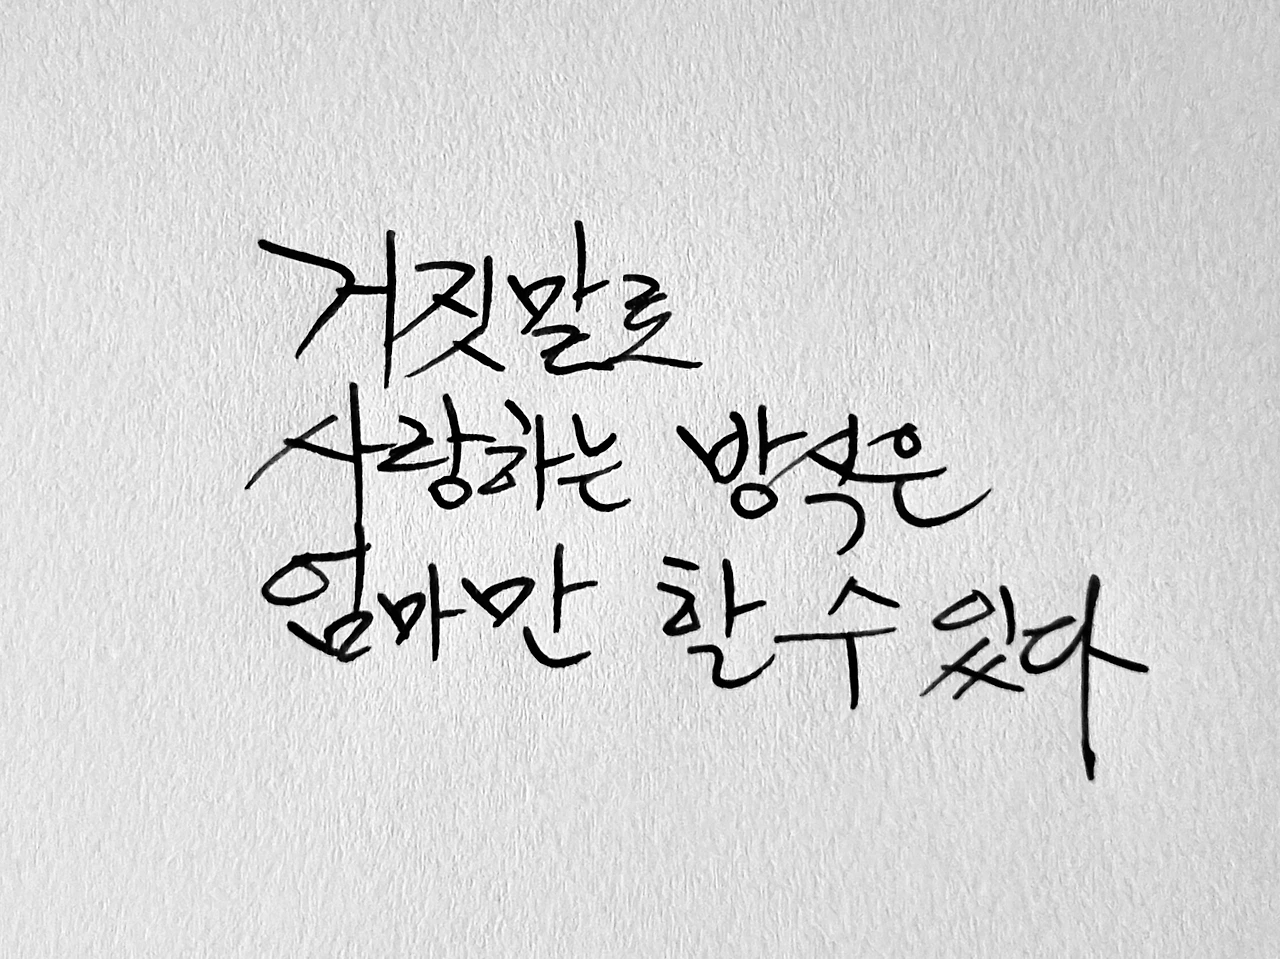 거짓말로
사랑하는 방식은
엄마만 할 수 있다